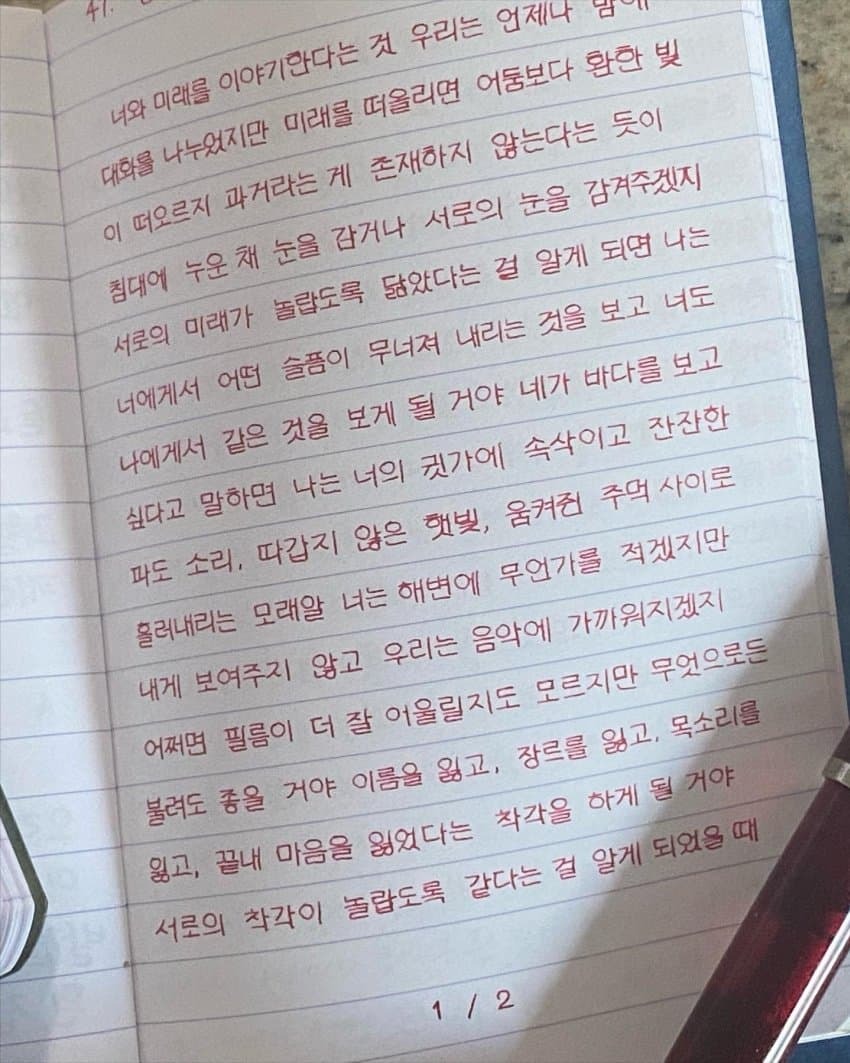 41.
너와 미래를 이야기한다는 것 우리는 언제나 밤에
대화를 나누었지만 미래를 떠올리면 어둠보다 환한 빛
이 떠오르지 과거라는 게 존재하지 않는다는 듯이
침대에 누운 채 눈을 감거나 서로의 눈을 감겨주겠지
서로의 미래가 놀랍도록 닮았다는 걸 알게 되면 나는
너에게서 어떤 슬픔이 무너져 내리는 것을 보고 너도
나에게서 같은 것을 보게 될 거야 네가 바다를 보고
싶다고 말하면 나는 너의 귓가에 속삭이고 잔잔한
파도 소리, 따갑지 않은 햇빛, 움켜쥔 주먹 사이로
흘러내리는 모래알 너는 해변에 무언가를 적겠지만
내게 보여주지 않고 우리는 음악에 가까워지겠지
어쩌면 필름이 더 잘 어울릴지도 모르지만 무엇으로든
불려도 좋을 거야 이름을 잃고, 장르를 잃고, 목소리를
잃고, 끝내 마음을 잃었다는 착각을 하게 될 거야
서로의 착각이 놀랍도록 같다는 걸 알게 되었을 때
1 / 2